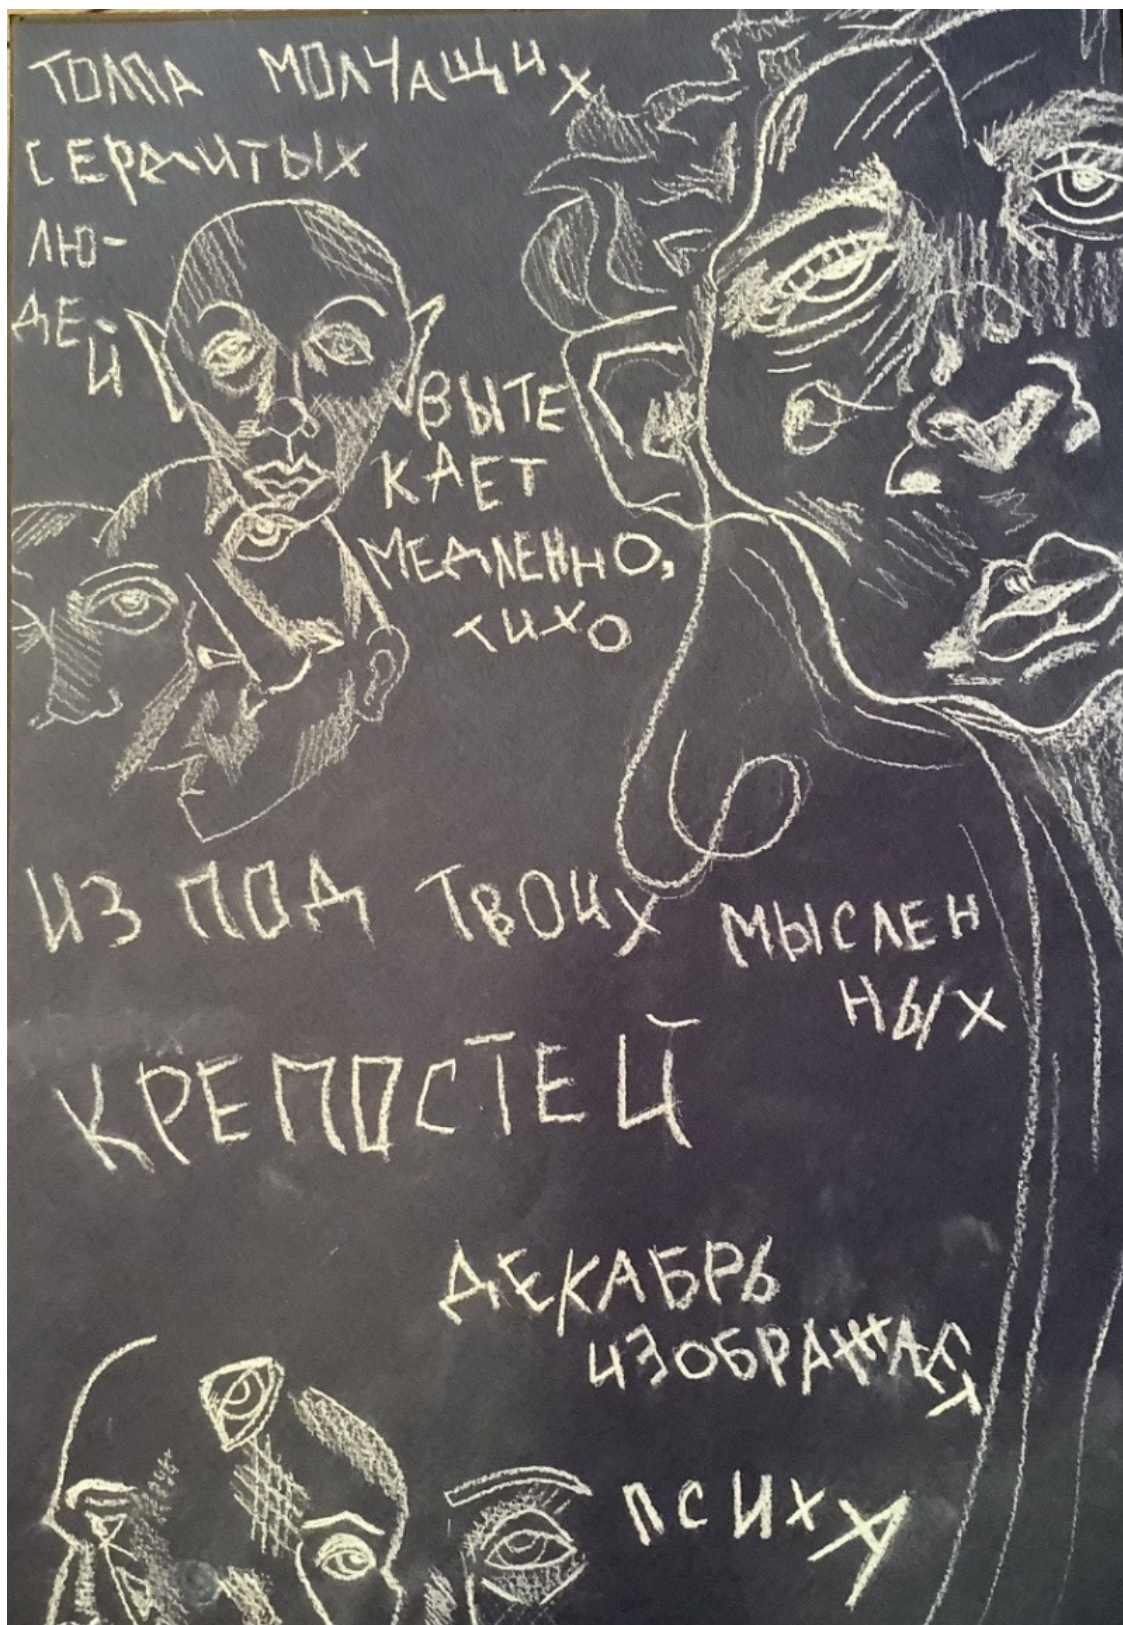 ТОЛПА МОЛЧАЩИХ
СЕРДИТЫХ
ЛЮ-
ДЕ-
Й
ВЫТЕ
КАЕТ
МЕДЛЕННО,
ТИХО
ИЗ ПОД ТВОИХ МЫСЛЕН
НЫХ
КРЕПОСТЕЙ
ДЕКАБРЬ
ИЗОБРАЖАЕТ
ПСИХА